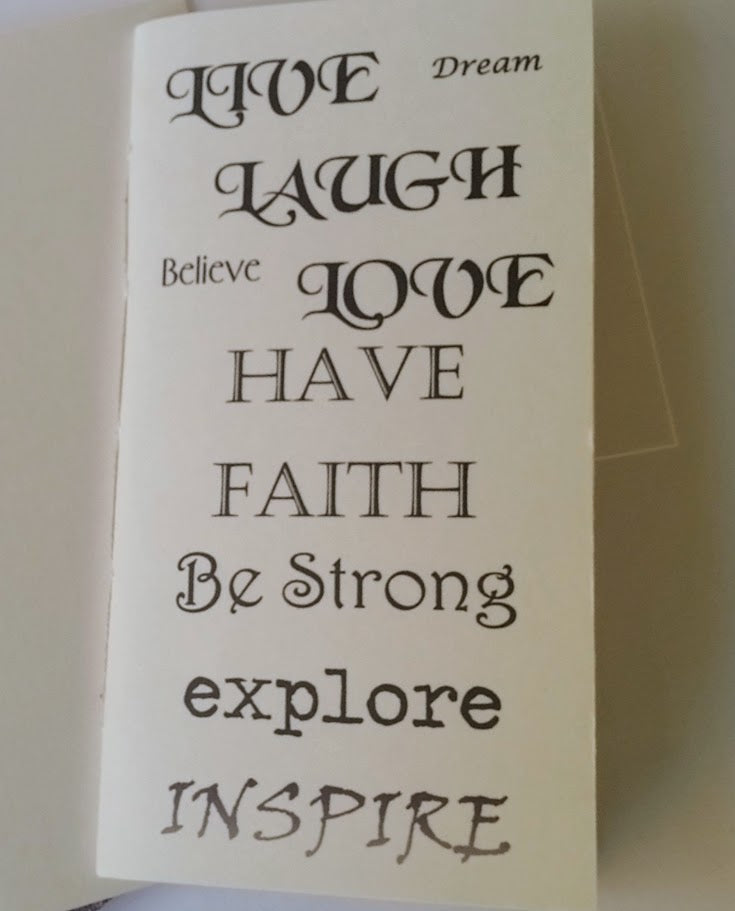 LIVE Dream
LAUGH
Believe LOVE
HAVE
FAITH
Be Strong
explore
INSPIRE